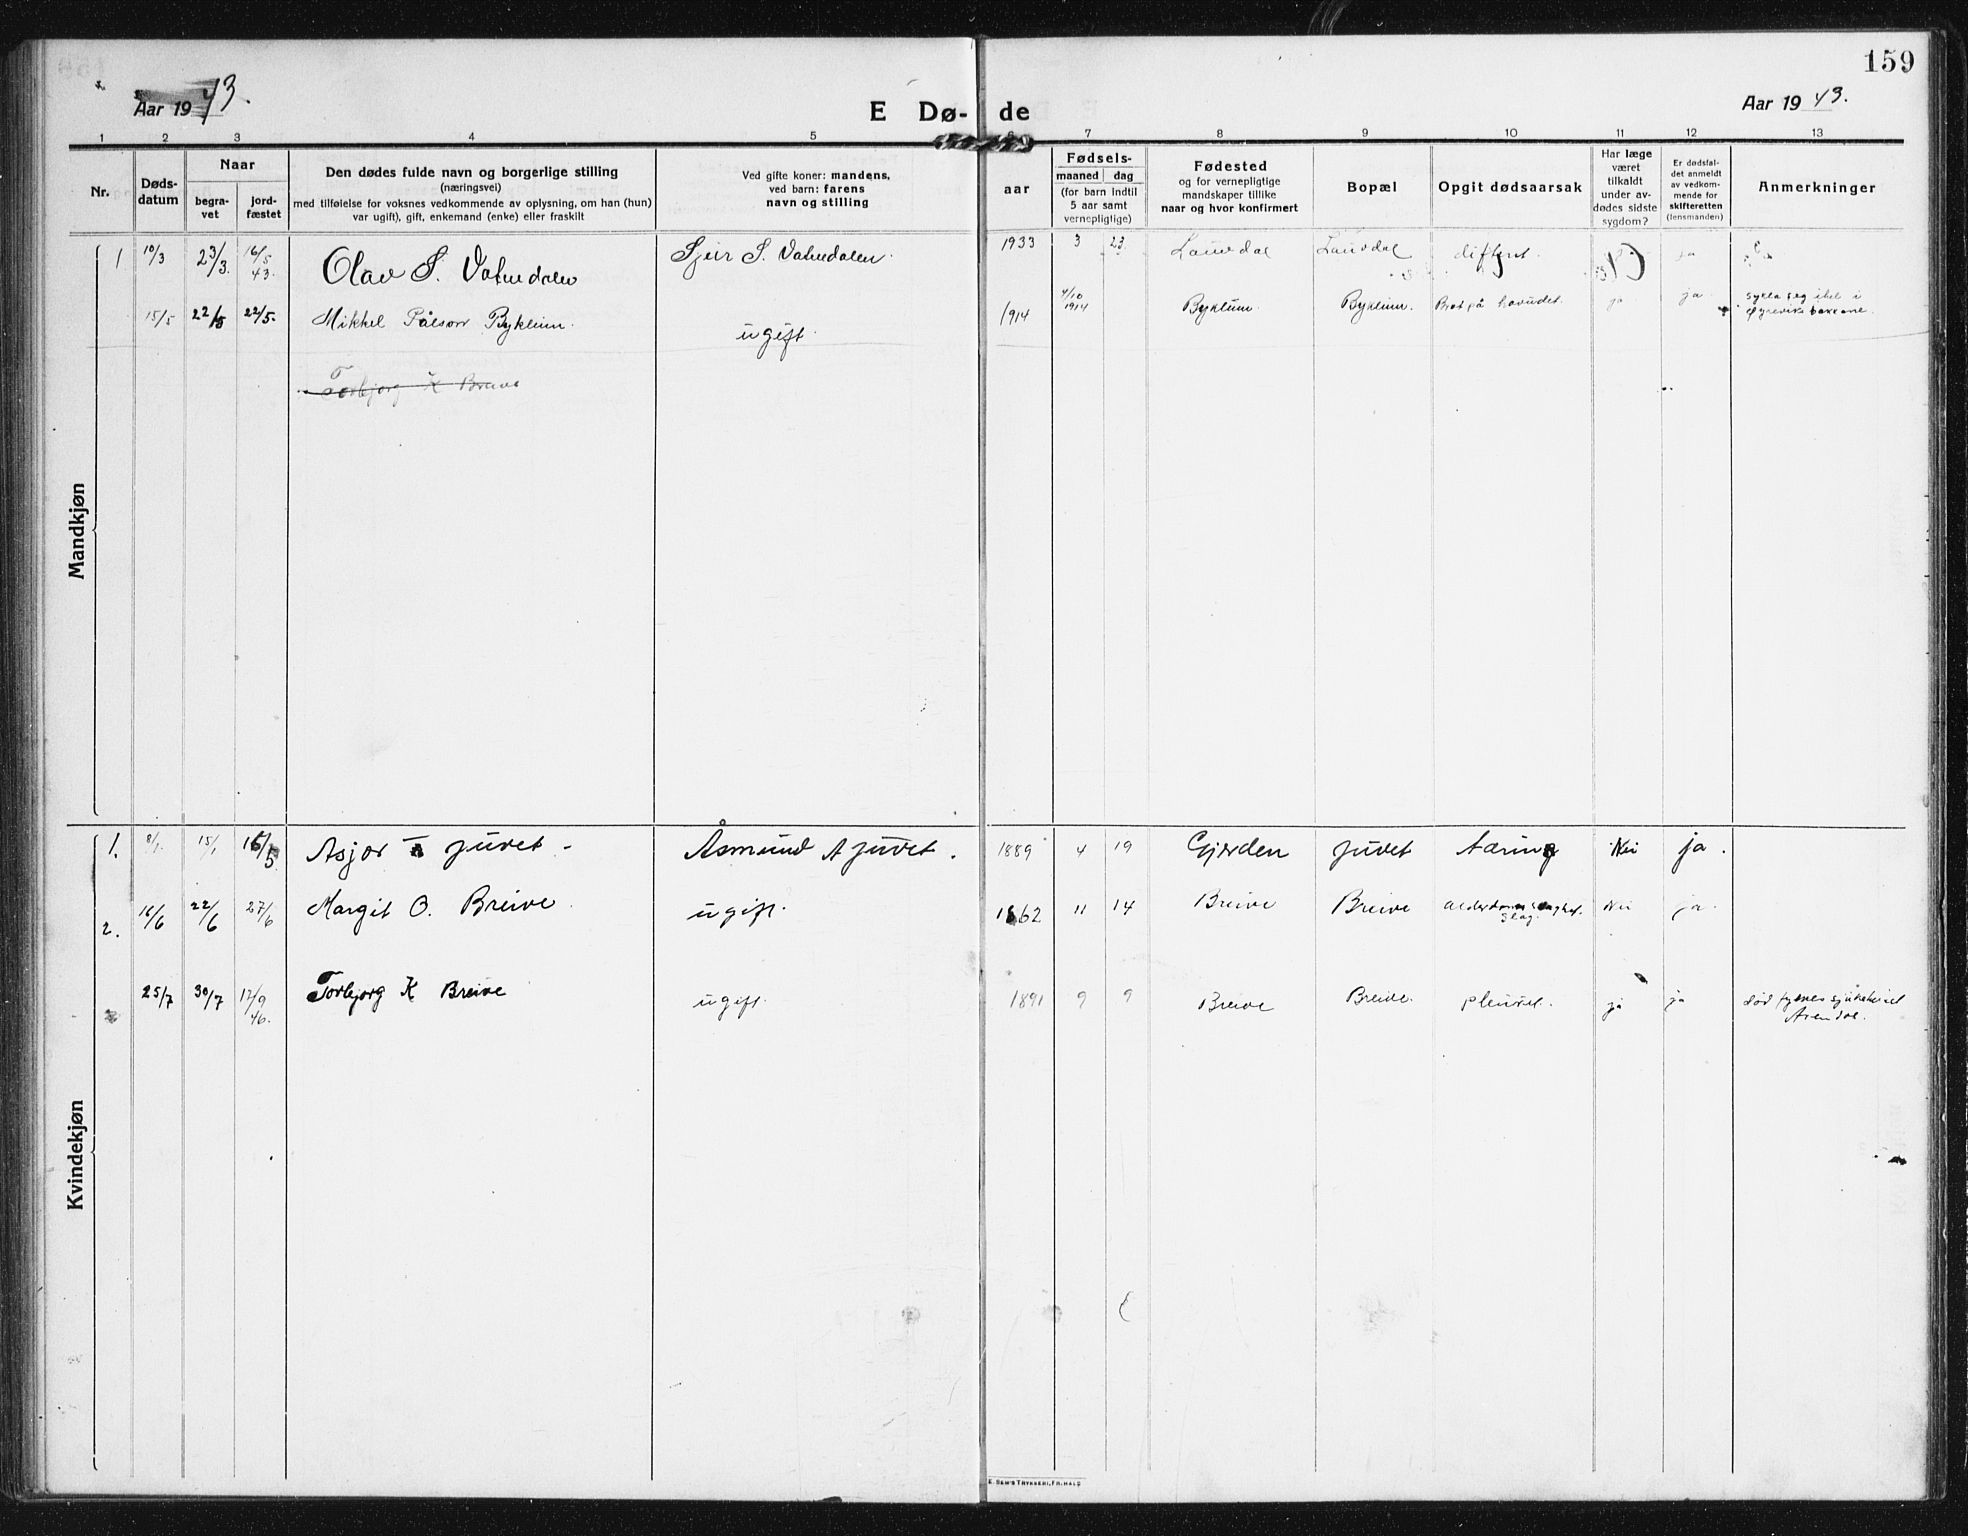 159
Aar 1943.
E Dø-de
Aar 1943.
1 2 3 4 5 6 7 8 9 10 11 12 13
Nr.
Døds-
datum
Naar
begra-
vet
jord-
fæstet
Den dødes fulde navn og borgerlige stilling
(næringsvei)
med tilføielse for voksnes vedkommende av oplysning, om han (hun)
var ugift), gift, enkemand (enke) eller fraskilt
Ved gifte koner: mandens,
ved barn: farens
navn og stilling
aar
Fødsels-
maaned dag
(for barn indtil
5 aar samt
vernepligtige)
Fødested
og for vernepligtige
mandskaper tillike
naar og hvor konfirmert
Bopæl
Opgit dødsaarsak
Har læge
været
tilkaldt
under av-
dødes sidste
sygdom?
Er dødsfal-
det anmeldt
av vedkom-
mende for
skifteretten
(lensmanden)
Anmerkninger
Mandkjøn
1 10/3 23/3. 16/5 43. Olav S. Vatnedalen Sjeir S. Vatnedalen. 1933 3 23 Lauvdal Lauvdal difterit. ja
15/5 22/5 22/5. Mikkel Pålson Bykleim. ugift 1914 4/10 1914 Bykleim. Bykleim. Brot på hovudet. ja ja. sykla seg ihel i
bakkane.
Torbjorg K Breive
Kvindekjøn
1. 8/1. 15/1 16/5 Asjer juvet - Åsmund A juvet. 1889 4 19 Gjerden juvet tæring Nei ja.
2. 16/6 22/6 27/6 Margit O. Breive ugift. 1862 11 14 Breive Breive slag. Nei ja.
25/7 30/7 12/9 46. Torbjorg K Breive ugift. 1891 9 9 Breive Breive. pleurit. ja ja død sjukehuset
Arendal.
E. SEM'S TRYKKERI, FR.HALD